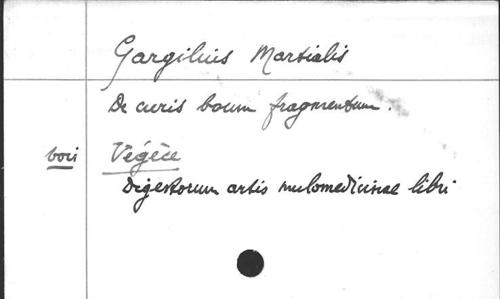 Gargilius Martialis
De curis boum fragmentum.
voir Végèce
Digestorum artis mulomedicinae libri